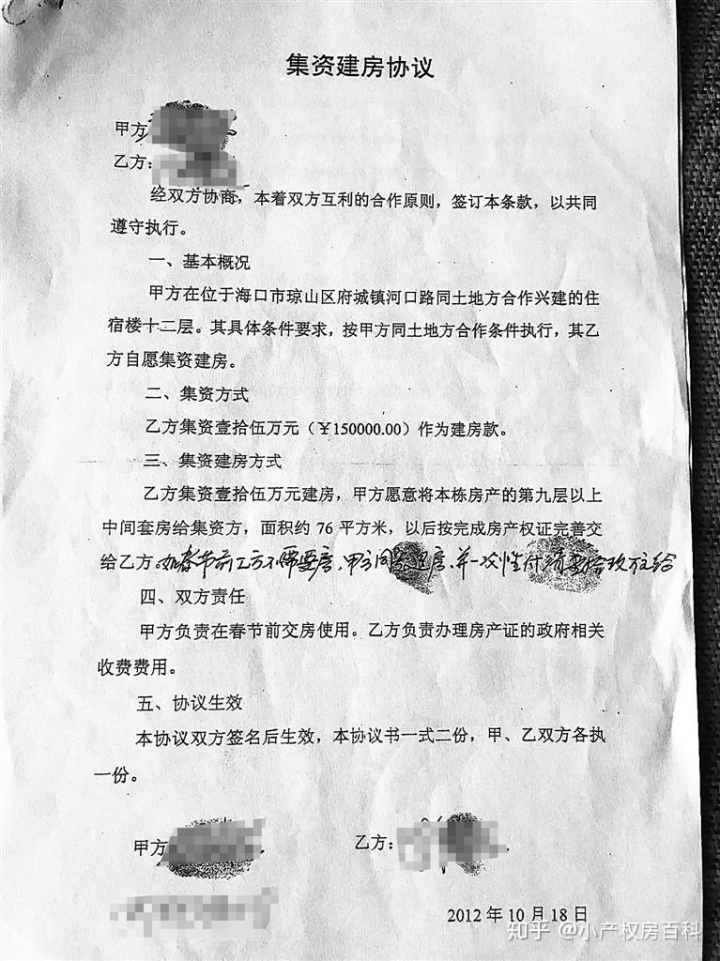 集资建房协议
甲方
乙方：
经双方协商，本着双方互利的合作原则，签订本条款，以共同
遵守执行。
一、基本概况
甲方在位于海口市琼山区府城镇河口路同土地方合作兴建的住
宿楼十二层。其具体条件要求，按甲方同土地方合作条件执行，其乙
方自愿集资建房。
二、集资方式
乙方集资壹拾伍万元（￥150000.00）作为建房款。
三、集资建房方式
乙方集资壹拾伍万元建房，甲方愿意将本栋房产的第九层以上
中间套房给集资方，面积约 76 平方米，以后按完成房产权证完善交
给乙方。如春节前乙方不需要房，甲方同意退房，并一次性付清壹拾玖万给
四、双方责任
甲方负责在春节前交房使用。乙方负责办理房产证的政府相关
收费费用。
五、协议生效
本协议双方签名后生效，本协议书一式二份，甲、乙双方各执
一份。
甲方
乙方：
2012 年 10 月 18 日
知乎 @小产权房百科